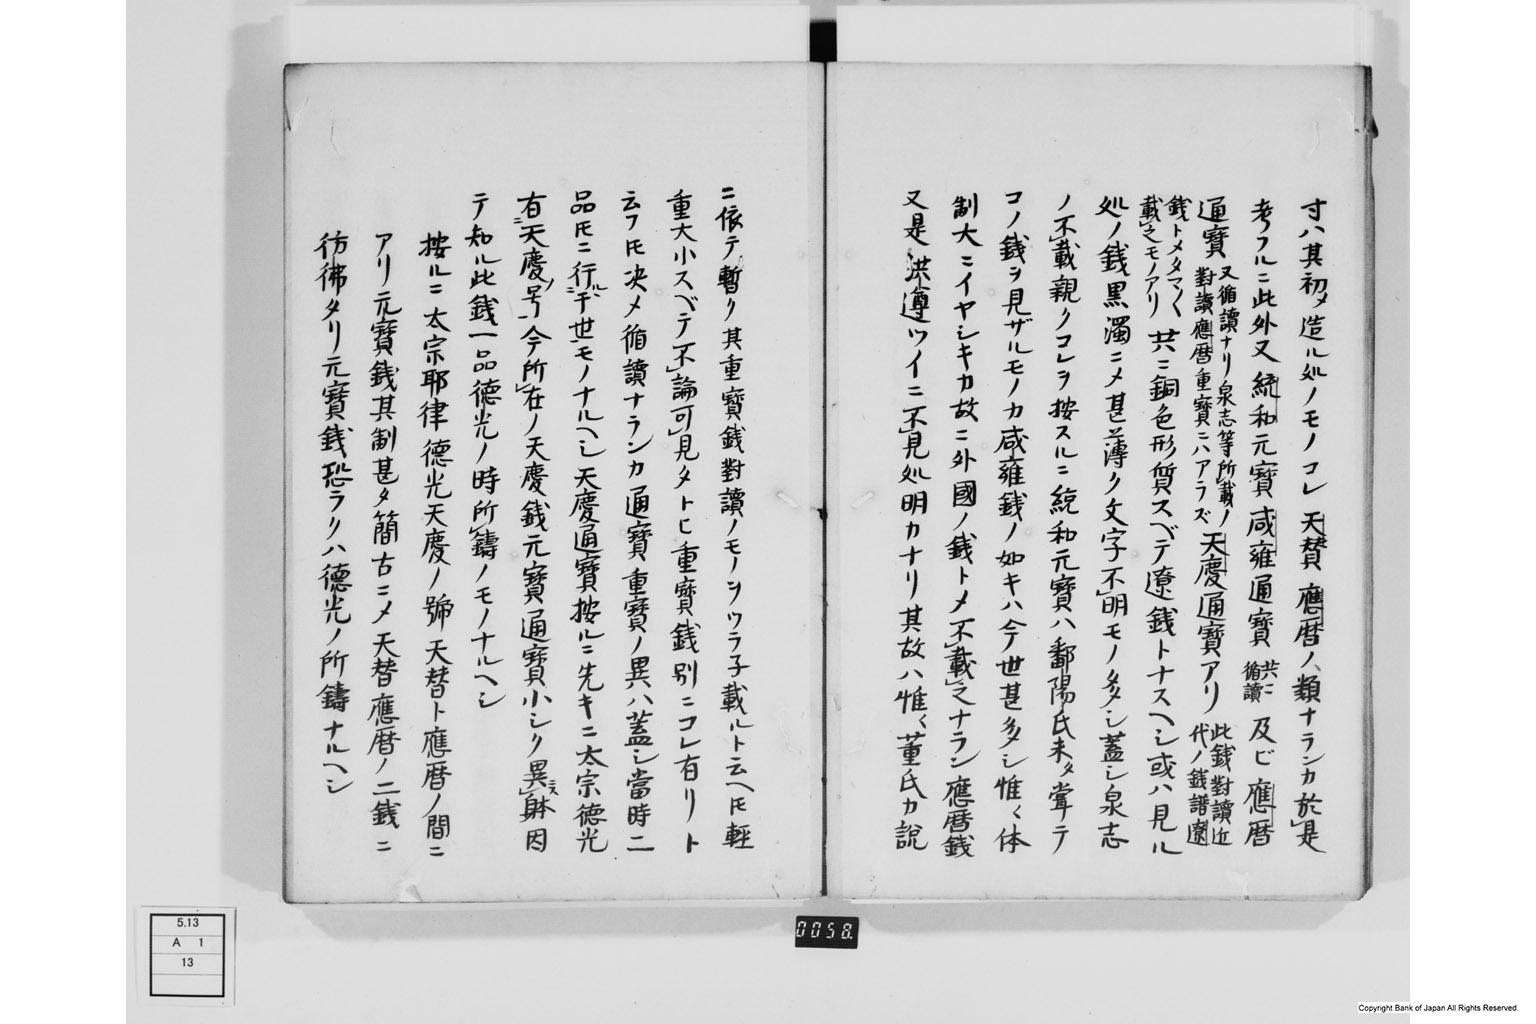 寸ハ其初メ造ル処ノモノコレ天賛應暦ノ類ナランカ於是
考フルニ此外又統和元寶咸雍通寶共ニ循讀及ビ應暦
通寳又循讀ナリ泉志等所載ノ對讀應暦重寳ニハアラズ天慶通寳アリ此銭對讀近代ノ銭譜遼
銭トメタマ〱載之モノアリ共ニ銅色形質スベテ遼銭トナスヘシ或ハ見ル
処ノ銭黒濁ニメ甚薄ク文字不明モノ多シ蓋シ泉志
ノ不載親クコレヲ按スルニ統和元寳ハ鄱陽氏未タ甞テ
コノ銭ヲ見ザルモノカ咸雍銭ノ如キハ今世甚多シ惟〻体
制大ニイヤシキカ故ニ外國ノ銭トメ不載之ナラン應暦銭
又是洪遵ツイニ不見処明カナリ其故ハ惟〻董氏カ説
ニ依テ暫ク其重寳銭對讀ノモノヲツラ子載ルト云ヘ𪜈輕
重大小スベテ不論可見タトヒ重寳銭別ニコレ有リト
云フ𪜈决メ循讀ナランカ通寳重寳ノ異ハ蓋シ當時二
品𪜈ニ行ルニ于世モノナルヘシ天慶通寳按ルニ先キニ太宗德光
有ニ天慶ノ号今所在ノ天慶銭元寳通寳小シク異ニス躰因
テ知ル此銭一品德光ノ時所鑄ノモノナルヘシ
按ルニ太宗耶律德光天慶ノ號天替ト應暦ノ間ニ
アリ元寳銭其制甚タ簡古ニメ天替應暦ノ二銭ニ
彷彿タリ元寳銭恐ラクハ德光ノ所鑄ナルヘシ
0058.
5.13
A 1
13
Copyright Bank of Japan All Rights Reserved.